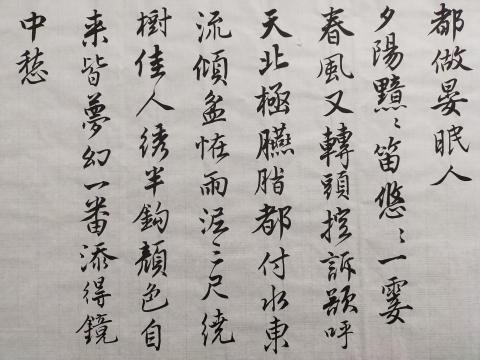 都做晏眠人
夕陽黯〻笛悠〻一霎
春風又轉頭控訴欲呼
天北極臙脂都付水東
流傾盆恠雨泥三尺繞
樹佳人綉半鈎顏色自
来皆夢幻一番添得鏡
中愁